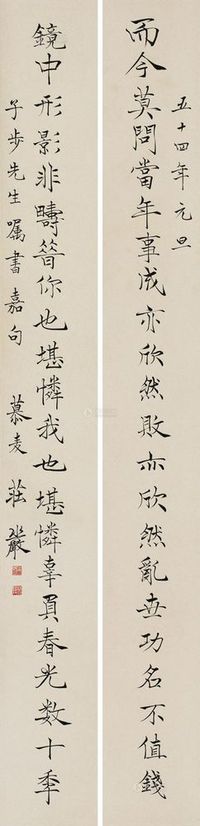 五十四年元旦
而今莫問當年事成亦欣然敗亦欣然亂世功名不值錢
鏡中形影非疇昔你也堪憐我也堪憐辜負春光数十年
子步先生嘱書嘉句
慕麦莊嚴